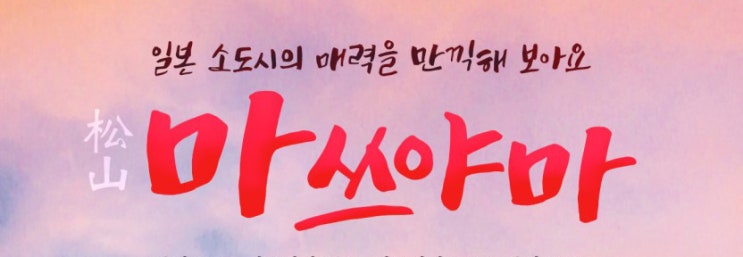 일본 소도시의 매력을 만끽해 보아요
松山
마쓰야마